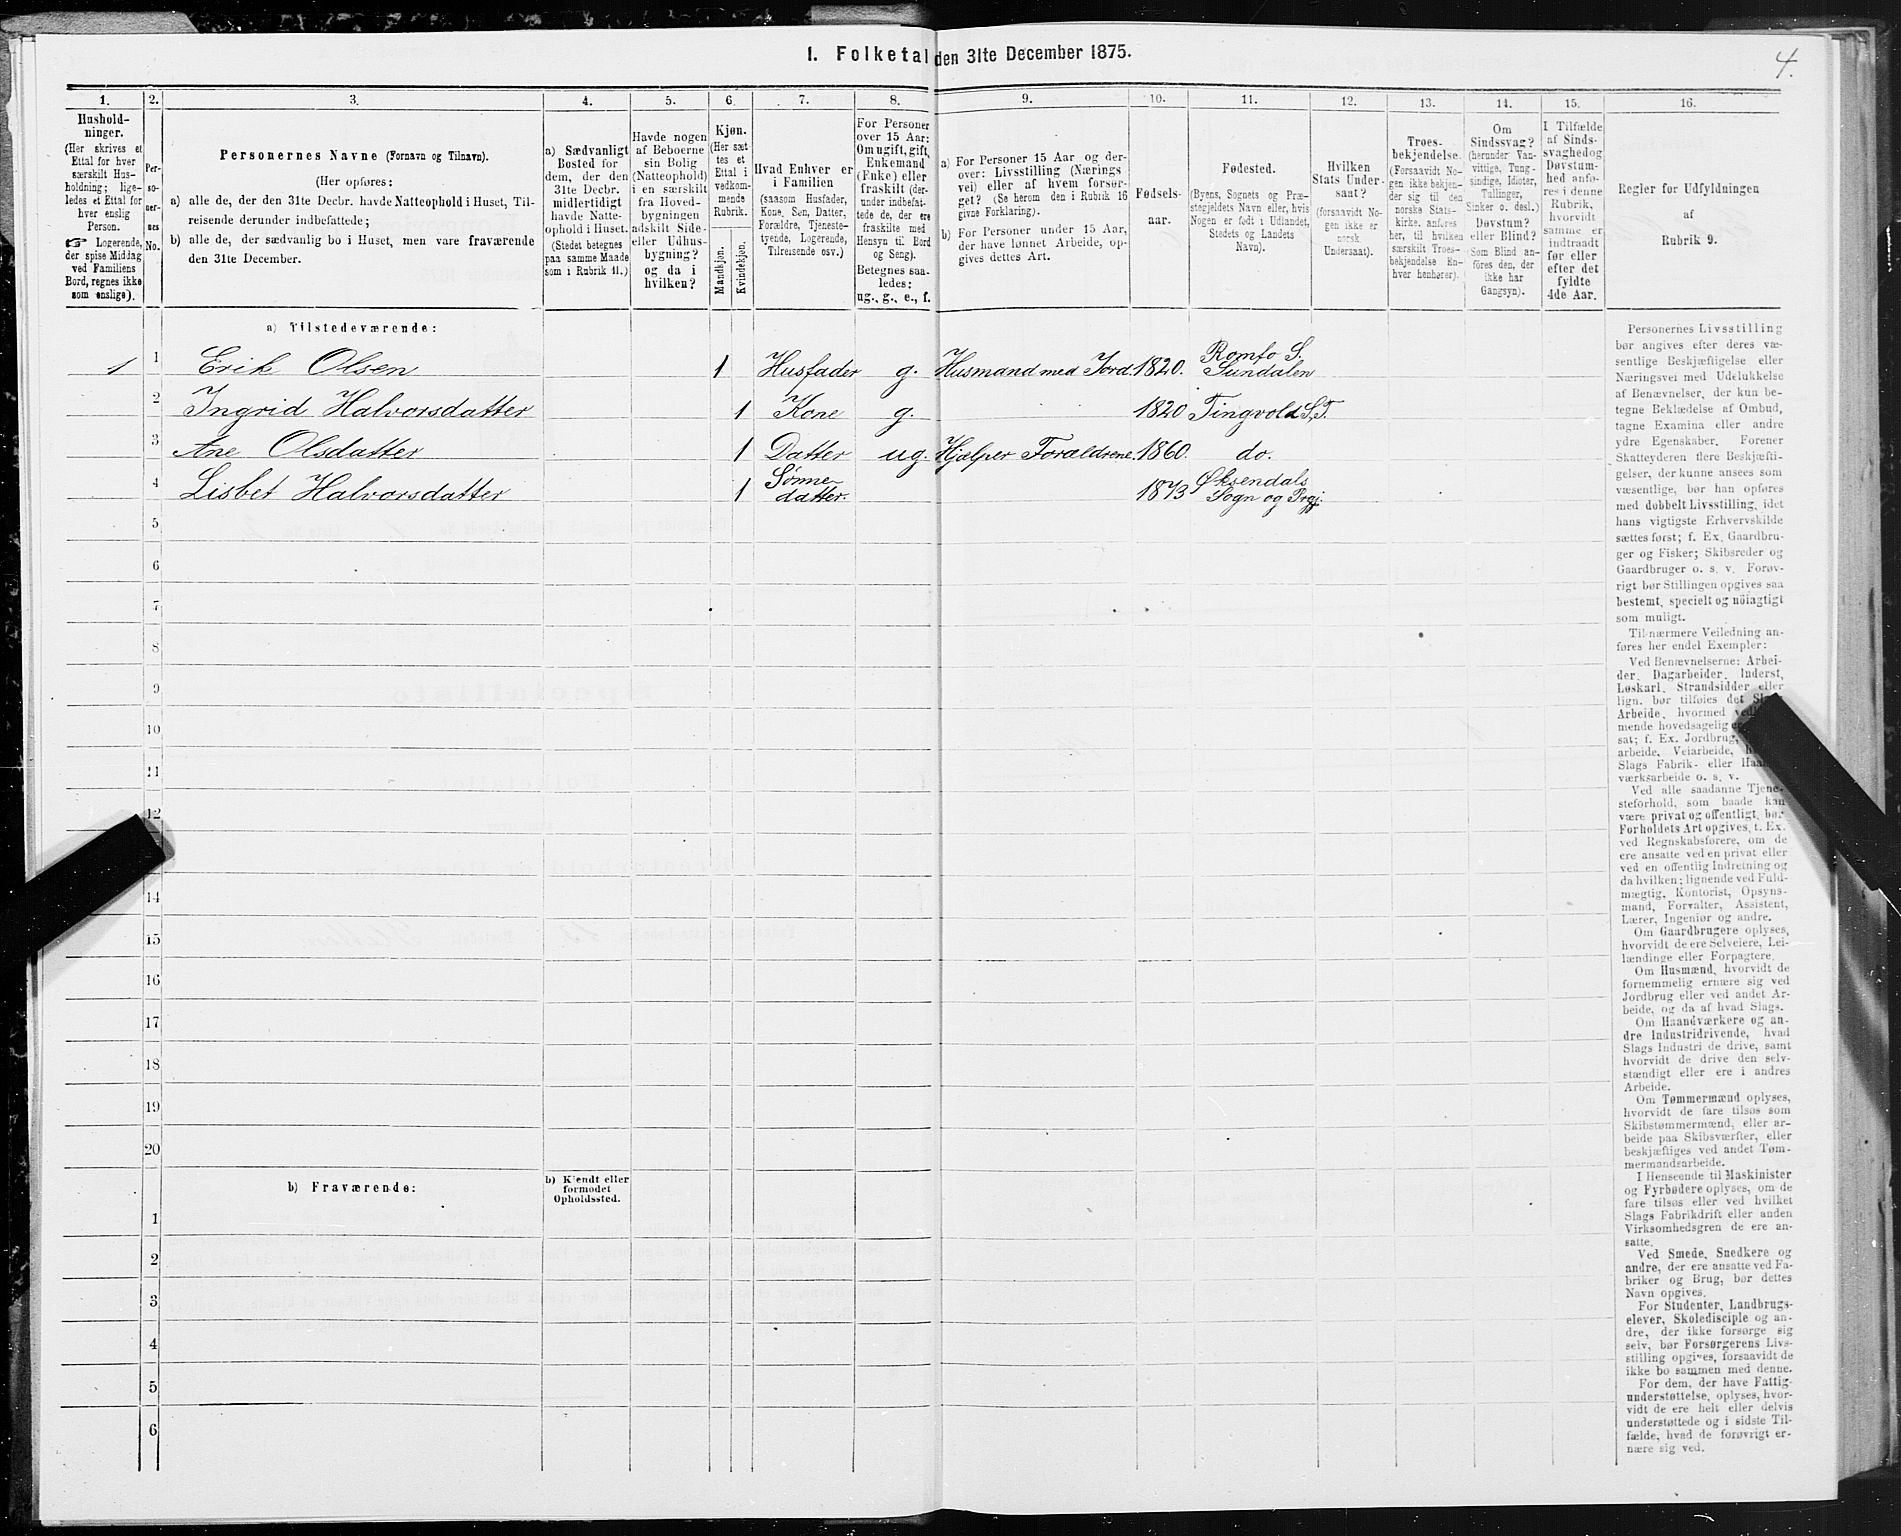 1. Folketal den 31te December 1875.
4.
1.
2.
3.
4.
5.
6.
7.
8.
9.
10.
11.
12.
13.
14.
15.
16.
Hushold-
ninger.
(Her skrives et
Ettal for hver
særskilt Hus-
holdning; lige-
ledes et Ettal for
hver enslig
Person.
☞ Logerende,
der spise Middag
ved Familiens
Bord, regnes ikke
som enslige).
Per-
so-
ner-
nes
No.
Personernes Navne (Fornavn og Tilnavn).
(Her opføres:
a) alle de, der den 31te Decbr. havde Natteophold i Huset, Til-
reisende derunder indbefattede;
b) alle de, der sædvanlig bo i Huset, men vare fraværende
den 31te December.
a) Sædvanligt
Bosted for
dem, der den
31te Decbr.
midlertidigt
havde Natte-
ophold i Huset.
(Stedet betegnes
paa samme Maade
som i Rubrik 11.)
Havde nogen
af Beboerne
sin Bolig
(Natteophold)
i en særskilt
fra Hoved-
bygningen
adskilt Side-
eller Udhus-
bygning?
og da i
hvilken?
Kjøn.
(Her sæt-
tes et
Ettal i
vedkom-
mende
Rubrik.
Mandkjøn.
Kvindekjøn.
Hvad Enhver er
i Familien
(saasom Husfader,
Kone, Søn, Datter,
Forældre, Tjeneste-
tyende, Logerende,
Tilreisende osv.)
For Personer
over 15 Aar:
Om ugift, gift,
Enkemand
(Enke) eller
fraskilt (der-
under indbefat-
tede de, der ere
fraskilte med
Hensyn til Bord
og Seng).
Betegnes saa-
ledes:
ug., g., e., f.
a) For Personer 15 Aar og der-
over: Livsstilling (Nærings
vei) eller af hvem forsør-
get? (Se herom den i Rubrik 16
givne Forklaring).
b) For Personer under 15 Aar,
der have lønnet Arbeide, op-
gives dettes Art.
Fødsels-
aar.
Fødested.
(Byens, Sognets og Præ-
stegjeldets Navn eller, hvis
Nogen er født i Udlandet,
Stedets og Landets
Navn).
Hvilken
Stats Under-
saat?
(forsaavidt No-
gen ikke er
norsk
Undersaat).
Troes-
bekjendelse.
(Forsaavidt No-
gen ikke bekjen-
der sig til den
norske Stats-
kirke, anføres
her, til hvilken
særskilt Troes-
bekjendelse En-
hver henhører).
Om
Sindssvag?
(herunder Van-
vittige, Tung-
sindige, Idioter,
Tullinger,
Sinker o. desl.)
Døvstum?
eller Blind?
(Som Blind an-
føres den, der
ikke har
Gangsyn).
I Tilfælde
af Sinds-
svaghed og
Døvstum-
hed anfø-
res i denne
Rubrik,
hvorvidt
samme er
indtraadt
før eller
efter det
fyldte
4de Aar.
Regler for Udfyldningen
af
Rubrik 9.
a) Tilstedeværende:
1 1 Erik Olsen 1 Husfader g. Husmand med Jord. 1820. Romfo S. Sundalen
2 Ingrid Halvorsdatter 1 Kone g. 1820 Tingvold S, T.
3 Ane Olsdatter 1 Datter ug. Hjælper Forældrene 1860. do.
4 Lisbet Halvorsdatter 1 Sønne-datter. 1873 Øksendals Sogn og Prgj.
5
6
7
8
9
10
11
12
14
15
16
17
18
19
20
b) Fraværende:
b) Kjendt eller
formodet
Opholdssted.
1
2
3
4
5
6
Personernes Livsstilling
bør angives efter deres væ-
sentlige Beskjæftigelse eller
Næringsvei med Udelukkelse
af Benævnelser, der kun be-
tegne Beklædelse af Ombud,
tagne Examina eller andre
ydre Egenskaber. Forener
Skatteyderen flere Beskjæfti-
gelser, der kunne ansees som
væsentlige, bør han opføres
med dobbelt Livsstilling, idet
hans vigtigste Erhvervskilde
sættes først; f. Ex. Gaardbru-
ger og Fisker; Skibsreder og
Gaardbruger o. s. v. Forøv-
rigt bør Stillingen opgives saa
bestemt, specielt og nöiagtigt
som muligt.
Til nærmere Veiledning an-
føres her endel Exempler:
Ved Benævnelserne: Arbei-
der, Dagarbeider, Inderst,
Løskarl, Strandsidder eller
lign. bør tilføies det
Arbeide, hvormed
mende hovedsagelig
sat; f. Ex. Jordbrug,
arbeide, Veiarbeide,
Slags Fabrik- eller
værksarbeide o. s. v.
Ved alle saadanne Tjene-
steforhold, som baade kan
være privat og offentligt, bør
Forholdets Art opgives, t. Ex.
ved Regnskabsførere, om de
ere ansatte ved en privat eller
ved en offentlig Indretning og
da hvilken; lignende ved Fuld-
mægtig, Kontorist, Opsyns-
mand, Forvalter, Assistent,
Lærer, Ingeniør og andre.
Om Gaardbrugere oplyses,
hvorvidt de ere Selveiere, Lei-
lændinge eller Forpagtere.
Om Husmænd, hvorvidt de
fornemmelig ernære sig ved
Jordbrug eller ved andet Ar-
beide, og da af hvad Slags.
Om Haandværkere og an-
dre Industridrivende, hvad
Slags Industri de drive, samt
hvorvidt de drive den selv-
stændigt eller ere i andres
Arbeide.
Om Tømmermænd oplyses,
hvorvidt de fare tilsøs som
Skibstømmermænd, eller ar-
beide paa Skibsværfter, eller
beskjæftiges ved andet Tøm-
mermandsarbeide.
I Henseende til Maskinister
og Fyrbødere oplyses, om de
fare tilsøs eller ved hvilket
Slags Fabrikdrift eller anden
Virksomhedsgren de ere an-
satte.
Ved Smede, Snedkere og
andre, der ere ansatte ved Fa-
briker og Brug, bør dettes
Navn opgives.
For Studenter, Landbrugs-
elever, Skoledisciple og an-
dre, der ikke forsørge sig
selv, bør Forsørgerens Livs-
stilling opgives, forsaavidt de
ikke bo sammen med denne.
For dem, der have Fattig-
understøttelse, oplyses, hvor-
vidt de ere helt eller delvis
understøttede og i sidste Til-
fælde, hvad de forøvrigt er-
nære sig ved.